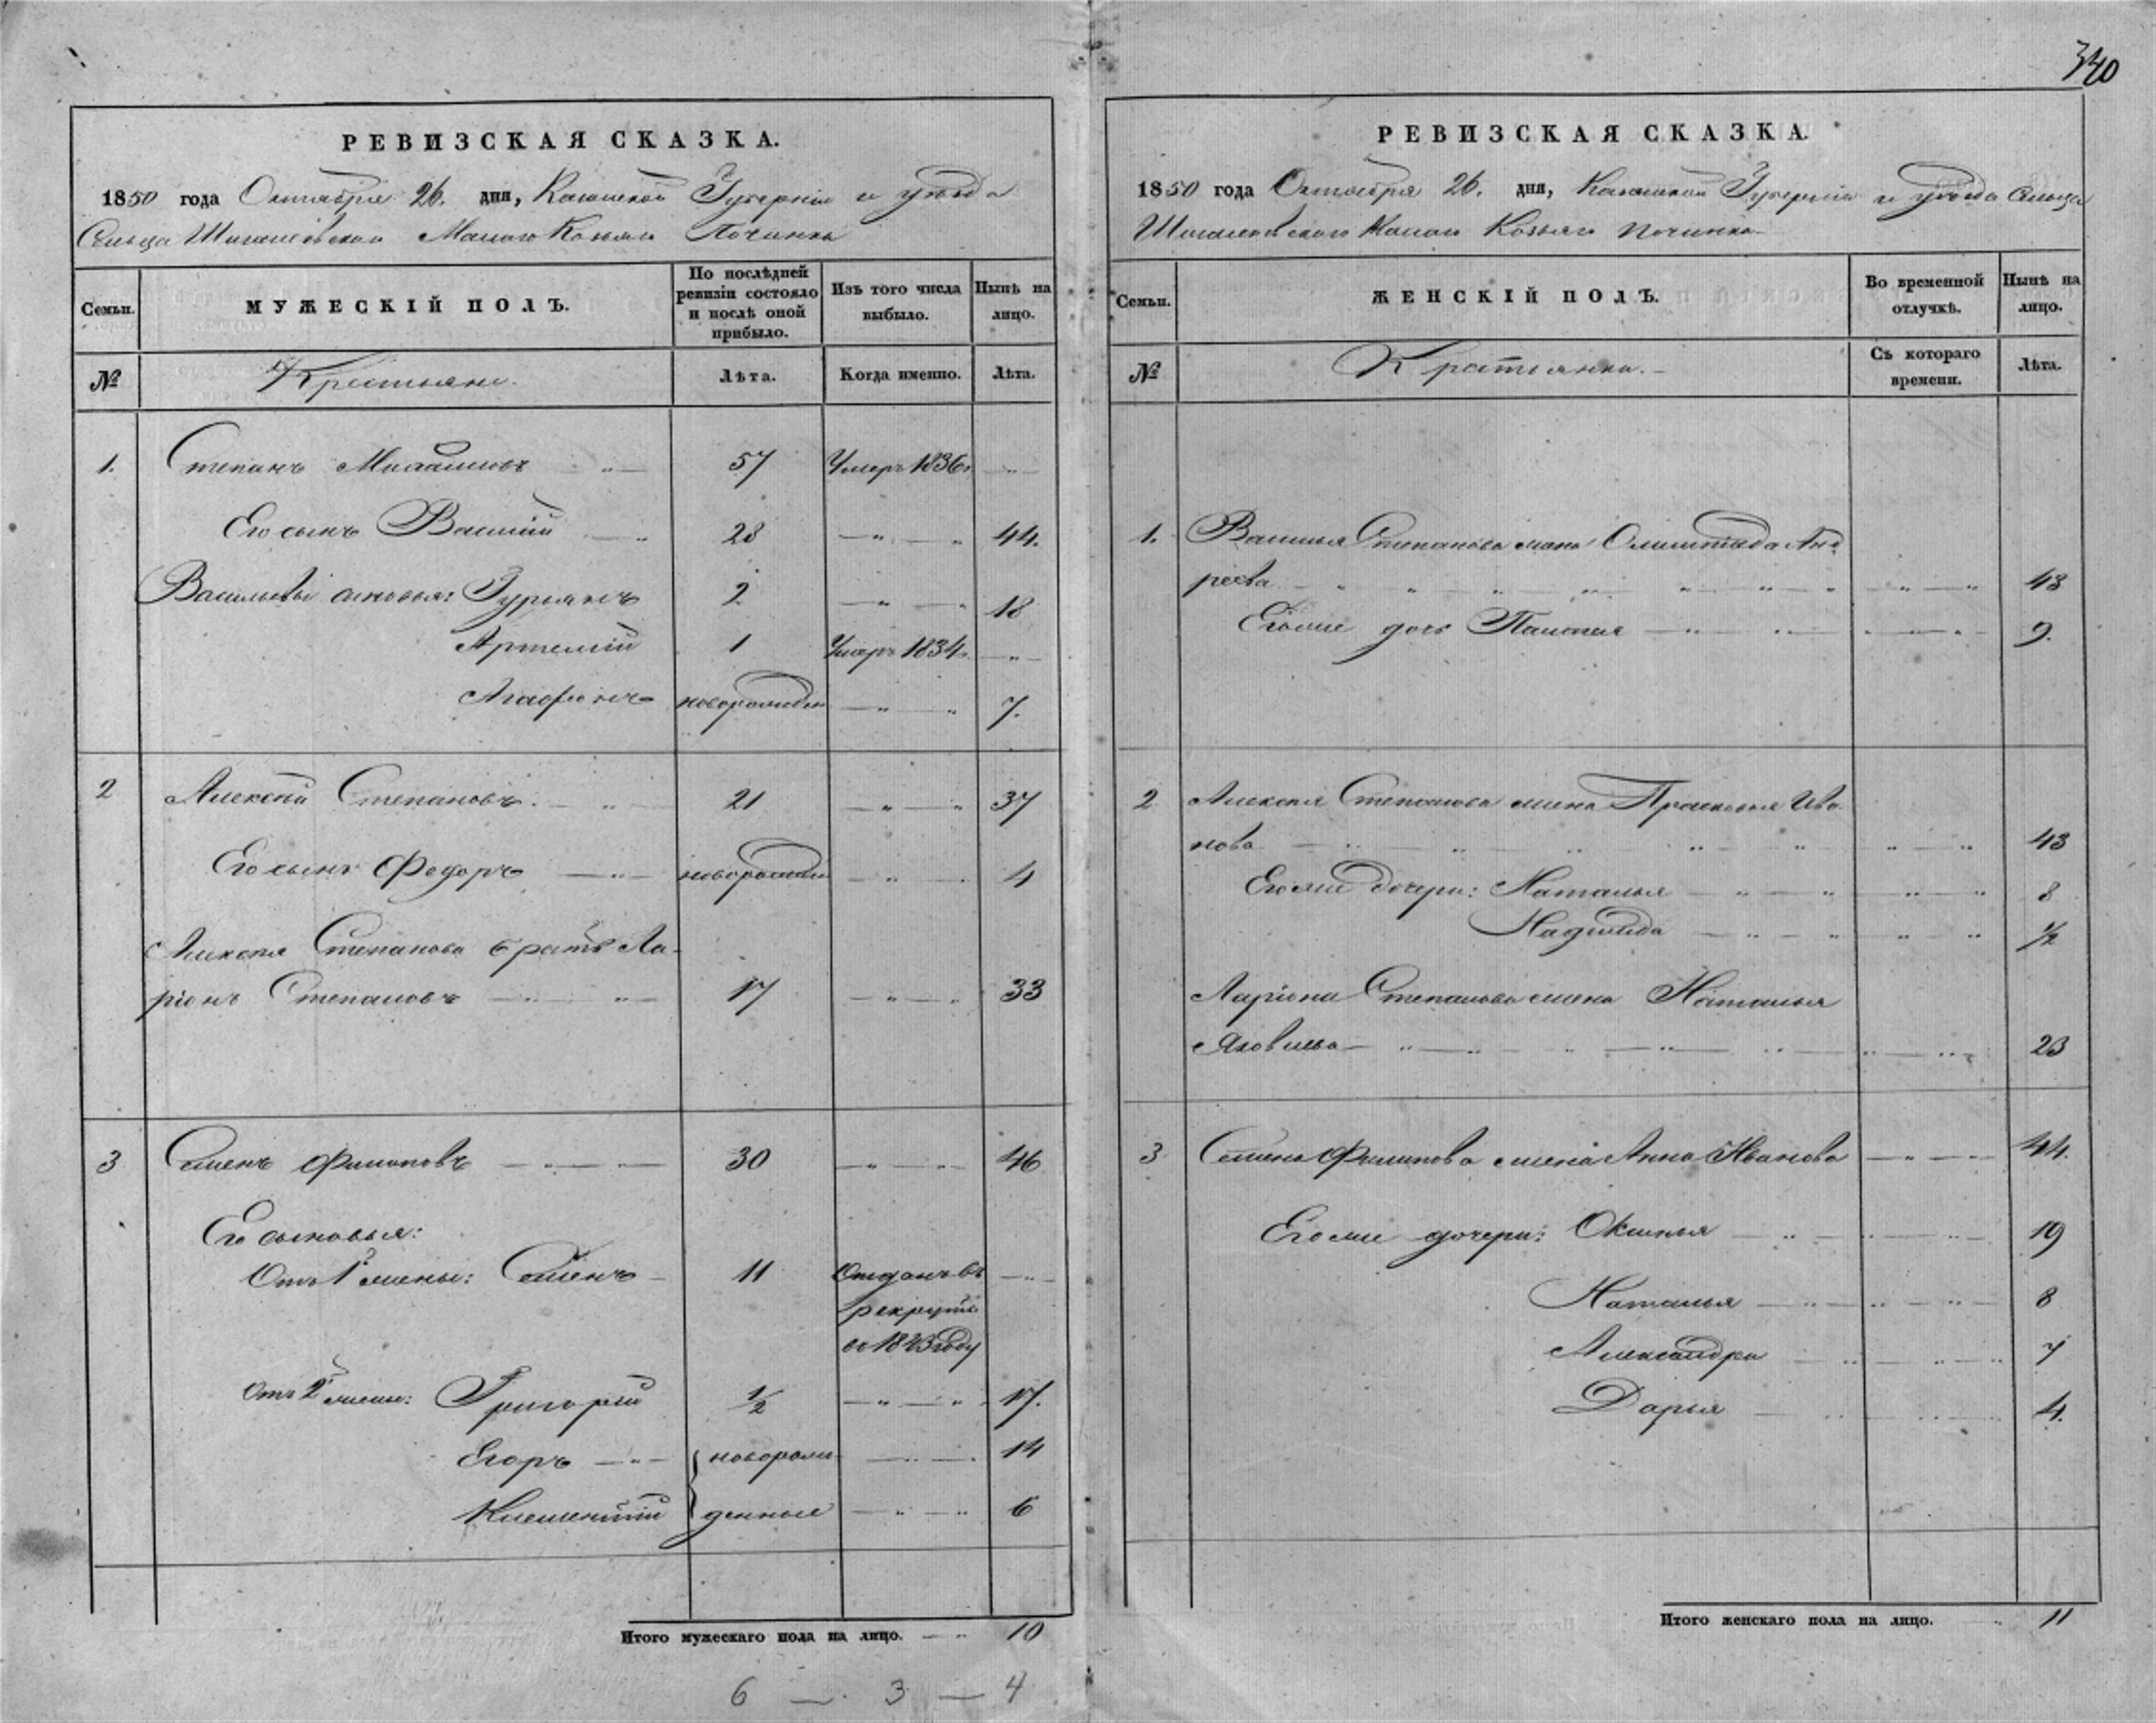 340
РЕВИЗСКАЯ СКАЗКА.
1850 года Октября 26. дня, Губерніи и уѣзда
Сельца Малаго Козьяго Починка
Семьи. МУЖЕСКІЙ ПОЛЪ. По послѣдней ревизіи состояло и послѣ оной прибыло. Изъ того числа выбыло. Нынѣ на лицо.
№ Крестьяне. Лѣта. Когда именно. Лѣта.
1. Степанъ 57 Умеръ 1836 г. — „ —
Его сынъ Василій — „ 28 — „ — „ 44.
Васильевы сыновья: Гурьянъ 2 — „ — „ 18
Артемій 1 Умеръ 1834 г. — „ —
Агафонъ новорожден — „ — „ 7.
2 Алексѣй Степановъ. — „ — 21 — „ — „ 37
Его сынъ Федоръ — „ — новорожден — „ — „ 4
Алексѣя Степанова братъ Ла-
ріонъ Степановъ — „ — „ — 17 — „ — „ 33
3 Семенъ Филиповъ — „ — „ — 30 — „ — „ — 46
Его сыновья:
Отъ 1й жены: Семенъ — 11 Отданъ въ — „ —
рекруты
въ 1843 году
Отъ 2й жены: Григорій 1/2 — „ — „ 17.
Егоръ — „ — { новорож- — „ — . 14
Клементій { денные — „ — „ 6
Итого мужескаго пола на лицо. — „ 10
6 — 3 — 4
РЕВИЗСКАЯ СКАЗКА.
1850 года Октября 26. дня, Губерніи и уѣзда Сельца
Малаго Козьяго Починка
Семьи. ЖЕНСКІЙ ПОЛЪ. Во временной отлучкѣ. Нынѣ на лицо.
№ Крестьянки. — Съ котораго времени. Лѣта.
1. Василья Степанова жена Олимпіада Анд
реева — „ — „ — „ — „ 43
Его же дочь — „ — „ — „ — 9.
2 Алексѣя Степанова жена Прасковья Ива-
нова — „ — „ — „ — „ 43
Его же дочери: Наталья — „ — „ — „ 8
Надежда — „ — „ — „ 1/2
Ларіона Степанова жена Наталья
Яковлева — „ — „ — „ — „ 23
3 Семена Филипова жена Анна Иванова — „ — 44.
Его же дочери: Оксинья — „ — „ — 19
Наталья — „ — „ — 8
Александра — „ — „ — 7
Дарья — „ — „ — 4.
Итого женскаго пола на лицо. „ 11